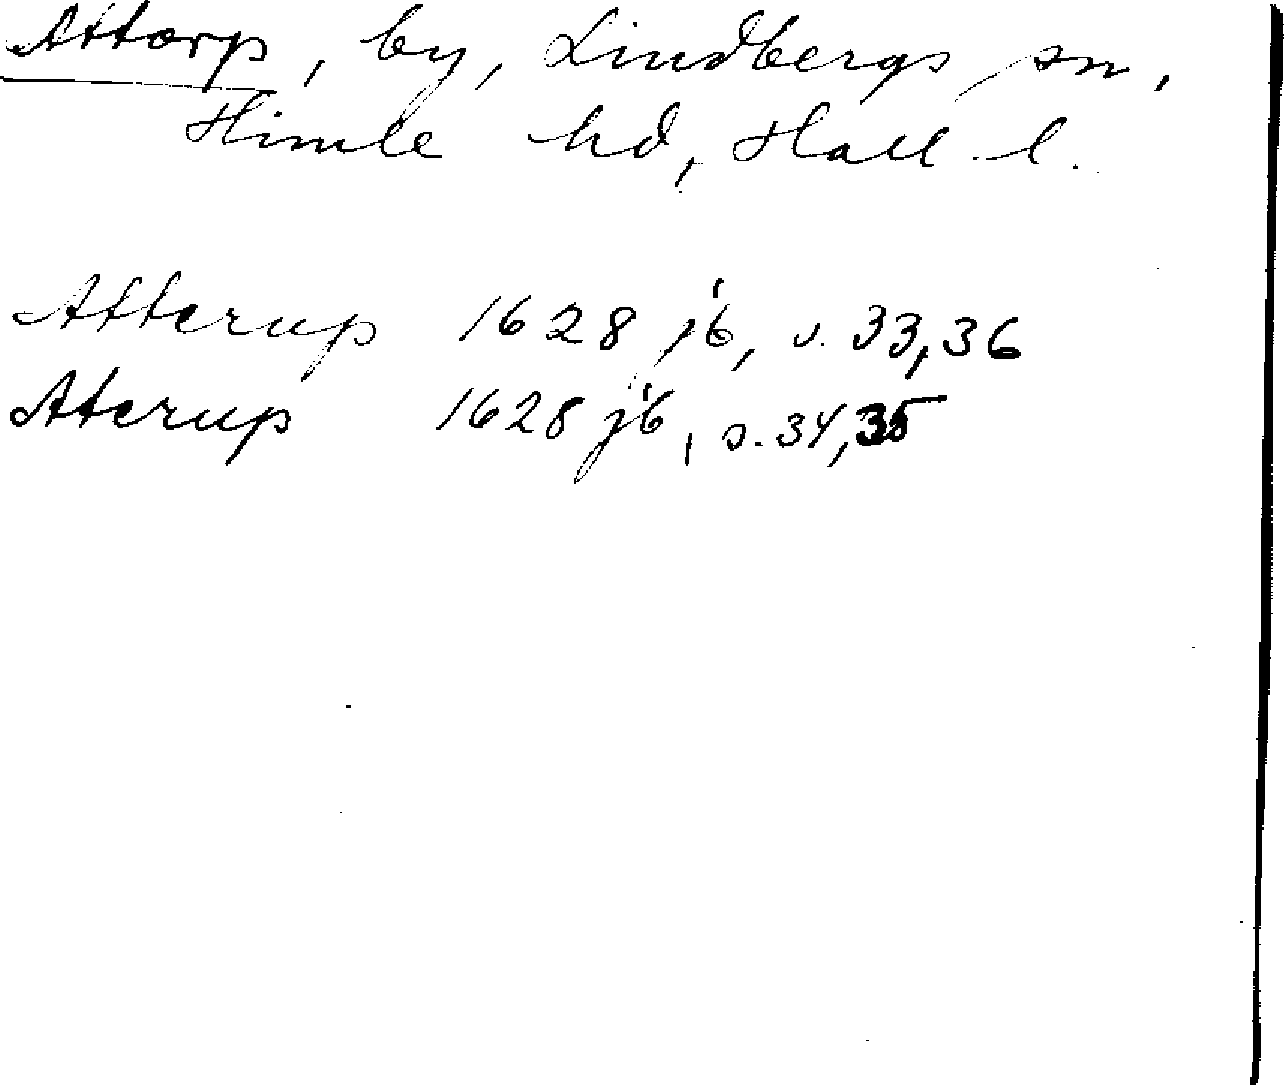 Attorp, by, Lindbergs sn,
Himle hd, Hall. l.
Atterup 1628 jb, s. 33,36
Aterup 1628 jb, s. 34,35